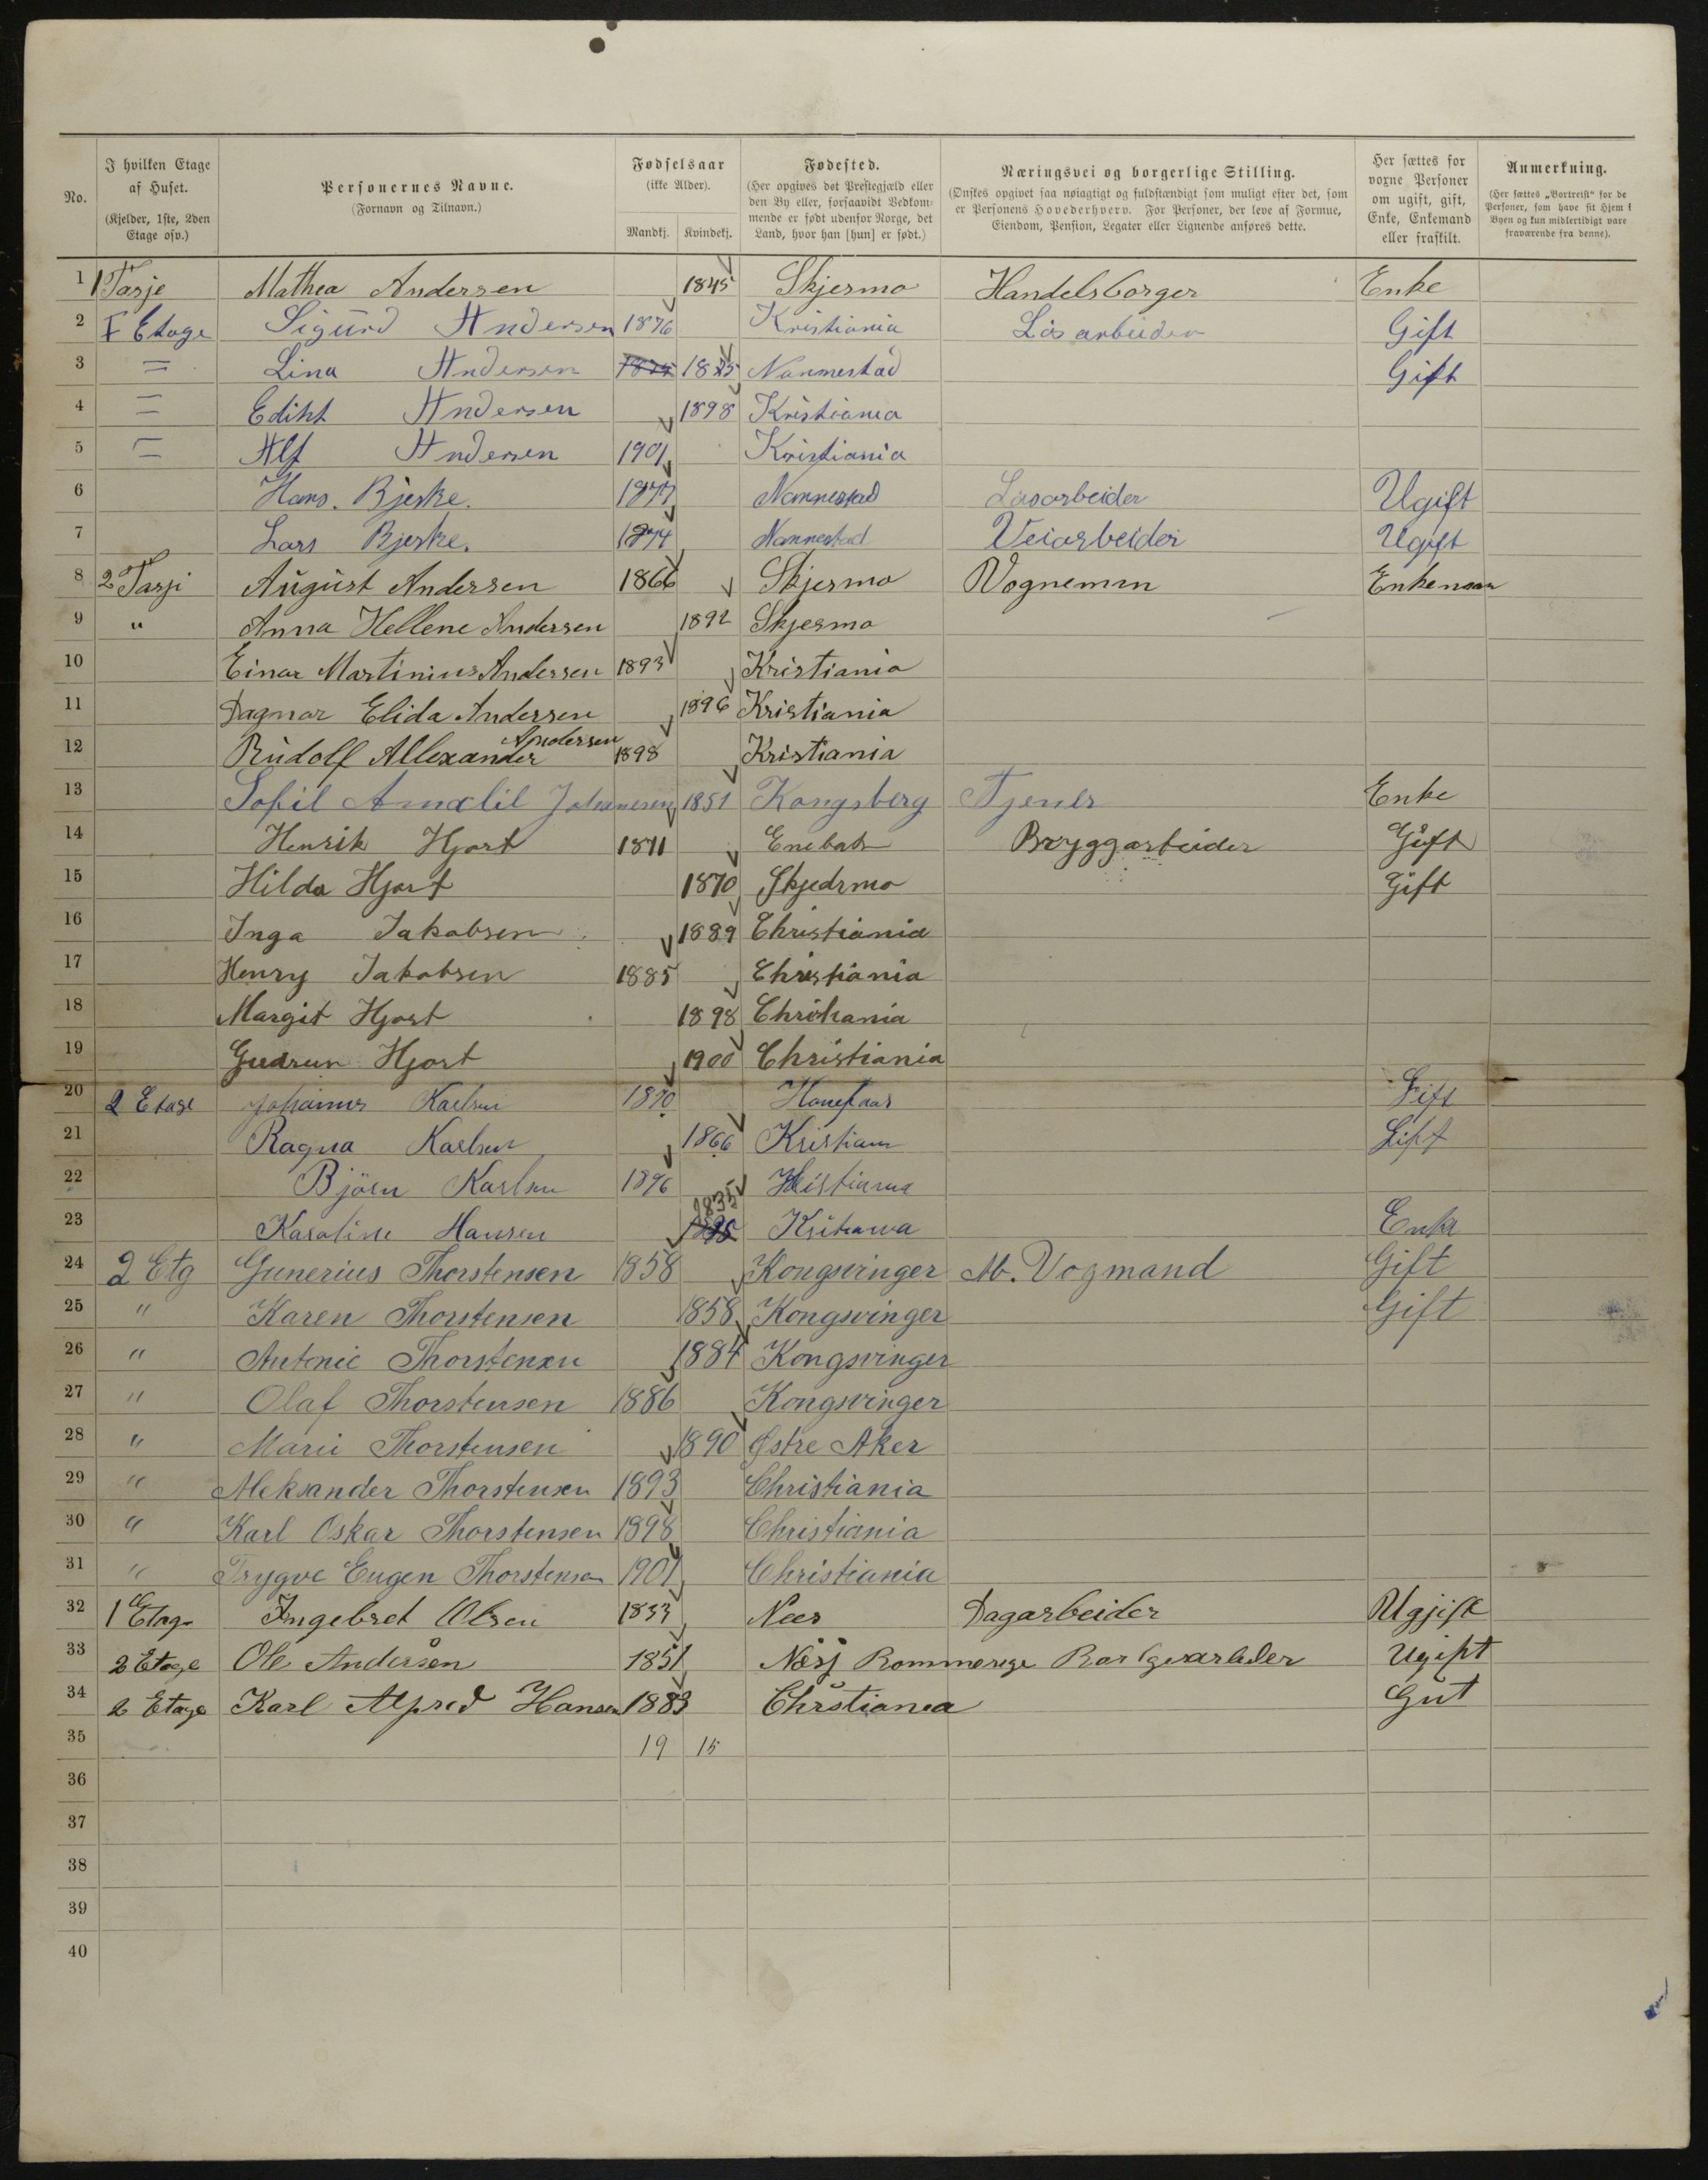 No.
I hvilken Etage af Huset.
(Kjelder, 1ste, 2den Etage osv.)
Personernes Navne.
(Fornavn og Tilnavn.)
Fødselsaar
(ikke Alder).
Mandkj. Kvindekj.
Fødested.
(Her opgives det Præstegjæld eller den By eller, forsaavidt Vedkommende er født udenfor Norge, det Land, hvor han [hun] er født.)
Næringsvei og borgerlige Stilling.
(Ønskes opgivet saa nøiagtigt og fuldstændigt som muligt efter det, som er Personens Hovederhverv. For Personer, der leve af Formue, Eiendom, Pension, Legater eller Lignende anføres dette.
Her sættes for voxne Personer om ugift, gift, Enke, Enkemand eller fraskilt.
Anmerkning.
(Her sættes „Bortreist“ for de Personer, som have sit Hjem i Byen og kun midlertidigt vare fraværende fra denne).
1 1 Tasje Mathea Andersen 1845 Skjesmo Handelsborger Enke
2 1 Etage Sigurd Andersen 1876 Kristiania Løsarbeider Gift
3 = Lina Andersen 1875 Nannestad Gift
4 = Ediht Andersen 1898 Kristiania
5 = Alf Andersen 1901 Kristiania
6 Hans. Bjerke. 1877 Nannestad Løsarbeider Ugift
7 Lars Bjerke. 1874 Nannestad Veiarbeider Ugift
8 2 Tasji August Andersen 1866 Skjesmo Vognemn Enkeman
9 " Anna Hellene Andersen 1892 Skjesmo
10 Einar Martinius Andersen 1893 Kristiania
11 Dagmar Elida Andersen 1896 Kristiania
12 Rudolf Allexander Andersen 1898 Kristiania
13 Sofil Amalil Johannesen 1851 Kongsberg Tjener Enke
14 Henrik Hjort 1871 Enebak Bryggarbeider Gift
15 Hilda Hjort 1870 Skjedsmo Gift
16 Inga Jakobsen 1889 Christiania
17 Henry Jakobsen 1885 Christiania
18 Margit Hjort 1898 Christiania
19 Gudrun Hjort 1900 Christiania
20 2 Etage Johannes Karlsen 1870 Hønefoss Gift
21 Ragna Karlsen 1866 Kristiania Gift
22 Bjørn Karlsen 1896 Kristiania
23 Karoline Hansen 1835 Kristiania Enke
24 2 Etg Gunerius Thorstensen 1858 Kongsvinger M. Vogmand Gift
25 " Karen Thorstensen 1858 Kongsvinger Gift
26 " Antonie Thorstensen 1884 Kongsvinger
27 " Olaf Thorstensen 1886 Kongsvinger
28 " Marie Thorstensen 1890 Østre Aker
29 " Aleksander Thorstensen 1893 Christiania
30 " Karl Oskar Thorstensen 1898 Christiania
31 " Trygve Eugen Thorstensen 1901 Christiania
32 1 Etage Ingebret Olsen 1833 Nees Dagarbeider Ugjift
33 2 Etage Ole Andersen 1851 Nesj Rommerige Ugift
34 2 Etage Karl Alfred Hansen 1883 Christiania
35 19 15
36
37
38
39
40